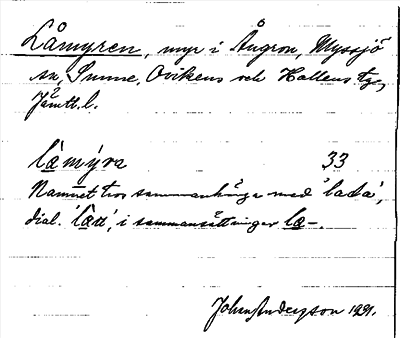 Låmyren, myr i Ångron, Myssjö
sn, Sunne, Ovikens och Hallens tg,
Jämtl. l.
låmýra 33
Namnet tros sammanhänga med 'lada',
dial. 'lått', i sammansättningar lå-.
John Anderson 1931.